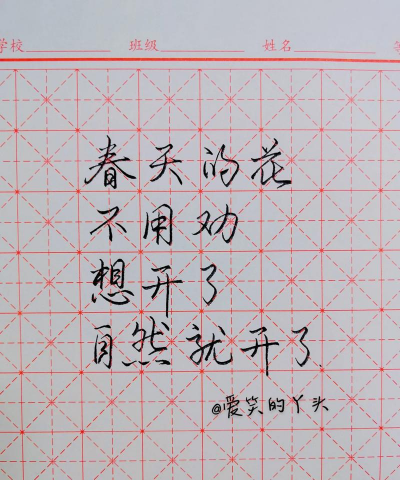 学校 班级 姓名
春天的花
不用劝
想开了
自然就开了
@爱笑的丫头